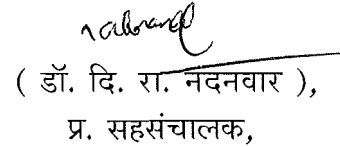 ( डॉ. दि. रा. नंदनवार ),
प्र. सहसंचालक,